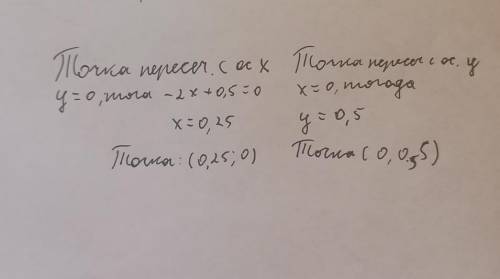 Точка пересеч. с ос x
y=0, тога -2x+0,5=0
x=0,25
Точка: (0,25; 0)
Точка пересеч с ос. y
x=0, тогода
y=0,5
Точка (0, 0,5)